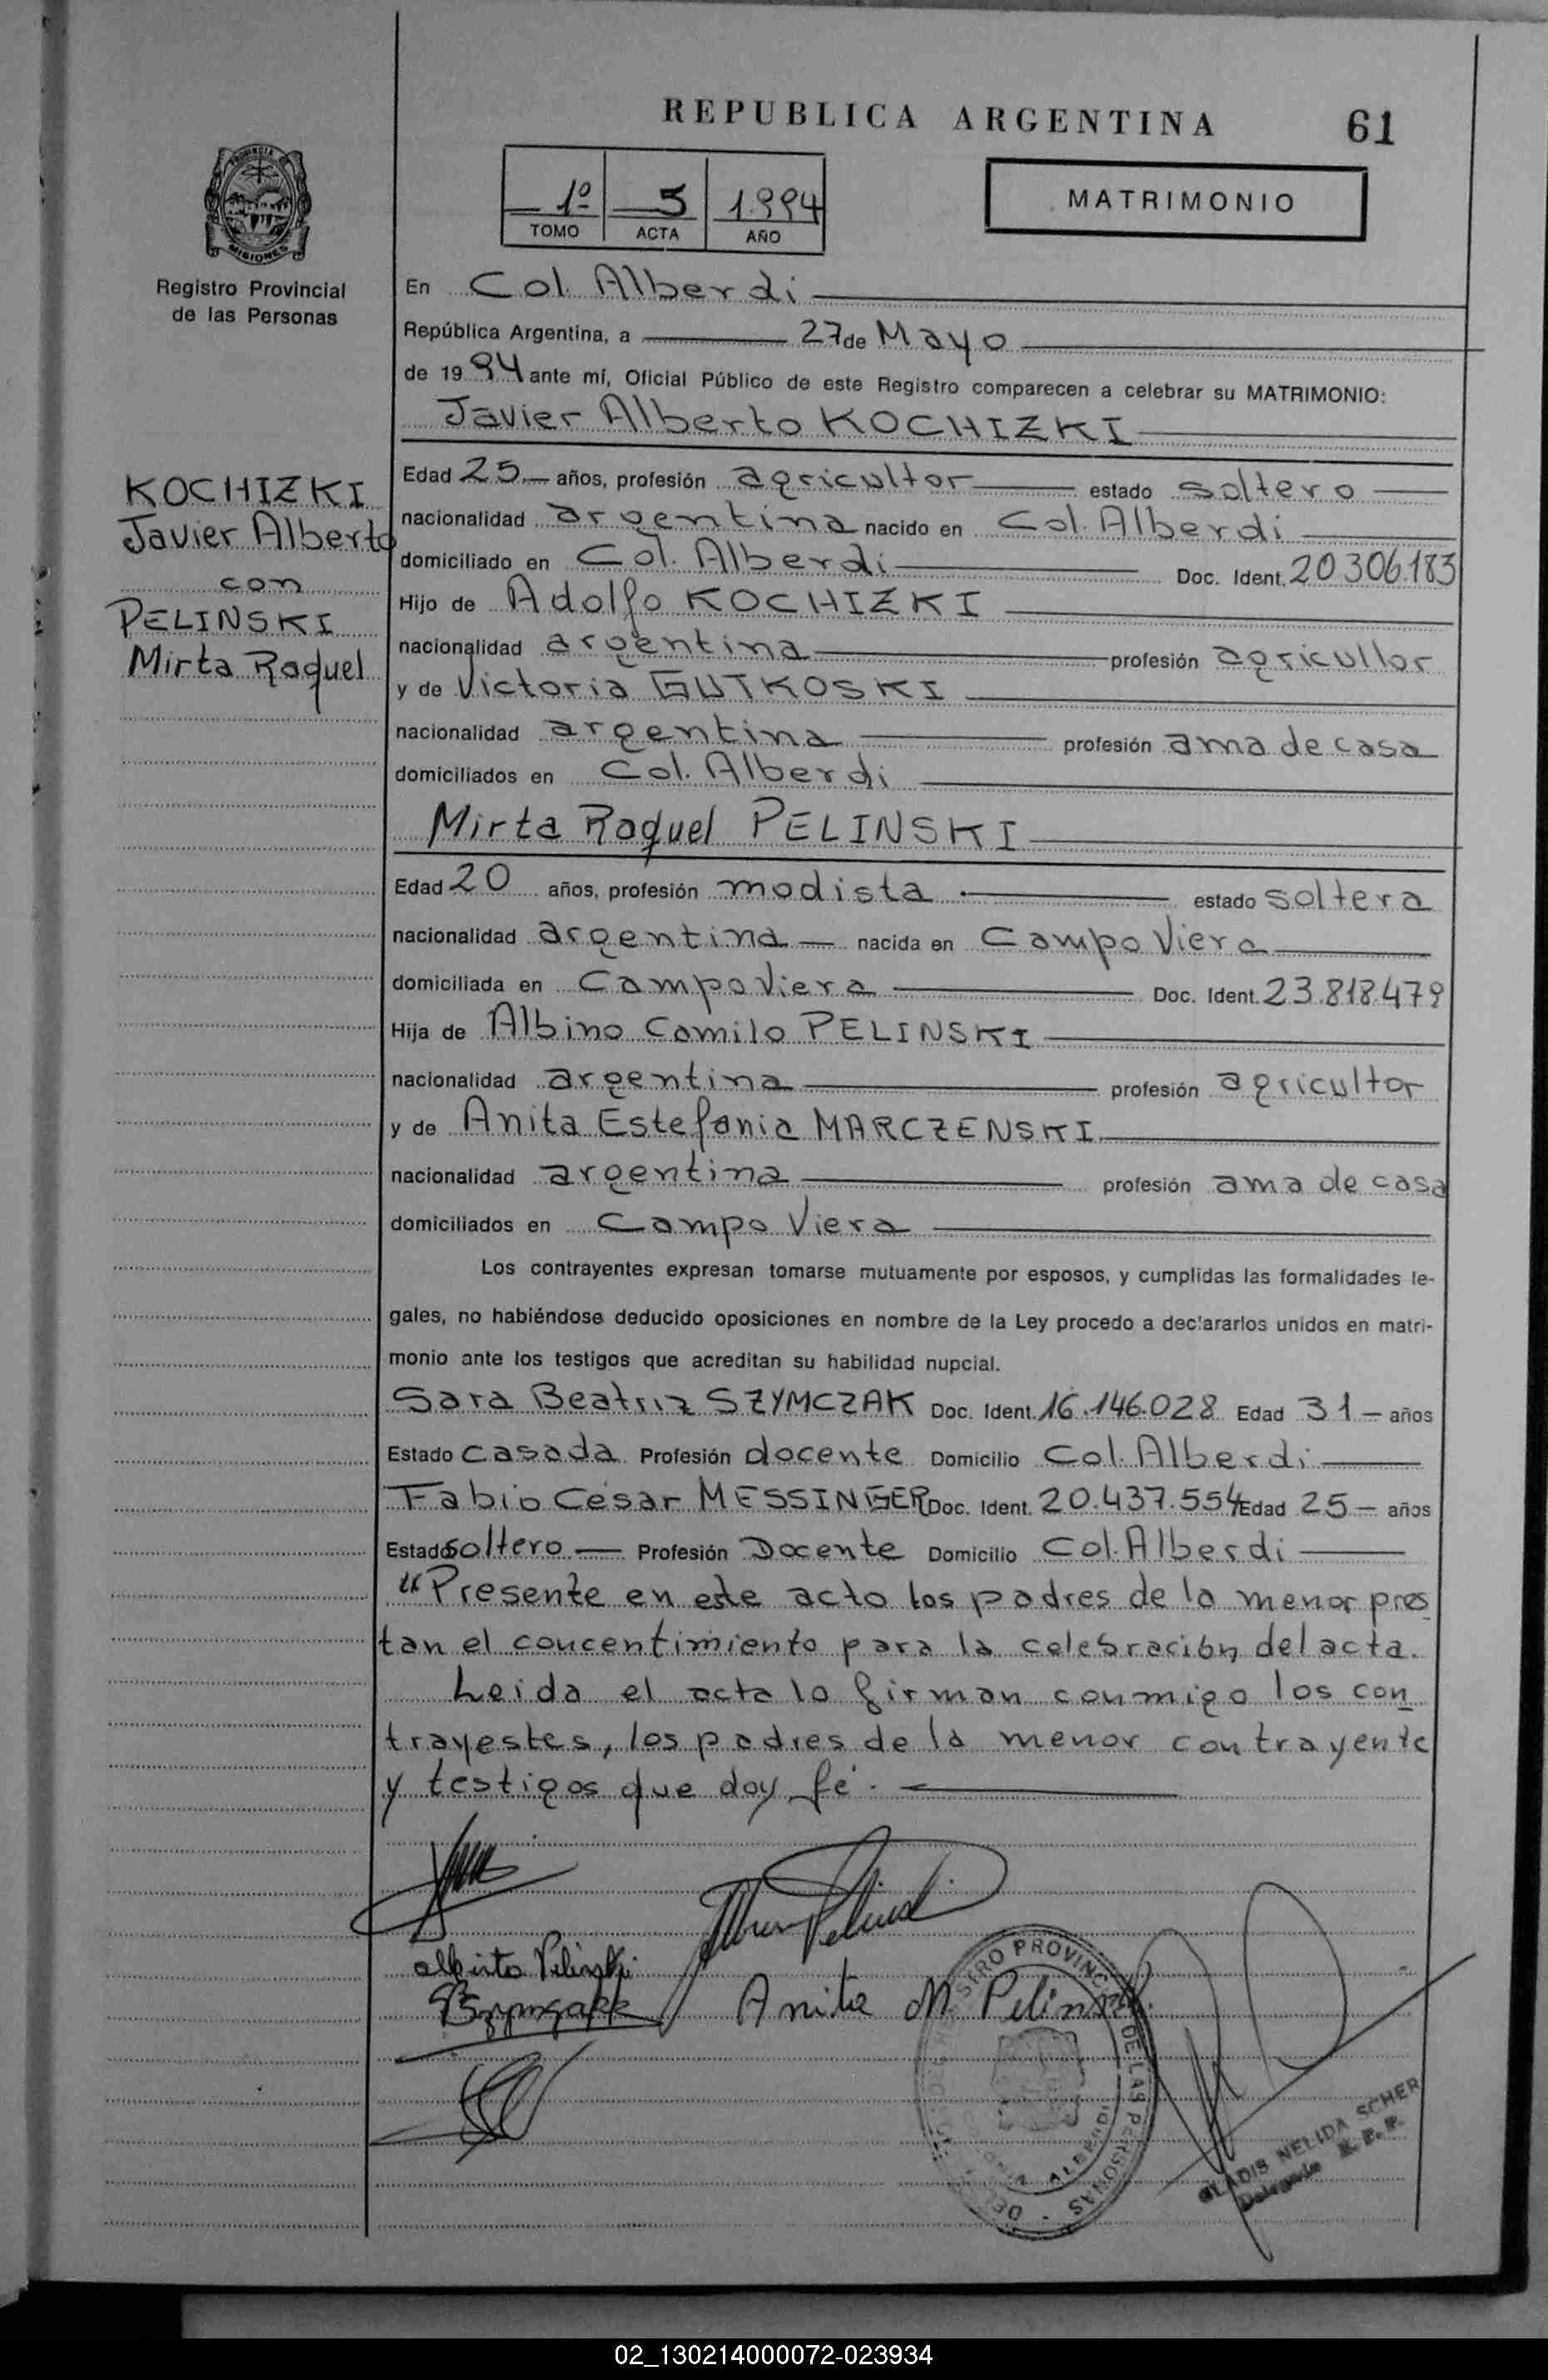 REPUBLICA ARGENTINA
61
PROVINCIA DE
MISIONES
Registro Provincial
de las Personas
1º 5 1.994
TOMO ACTA AÑO
MATRIMONIO
En Col. Alberdi
República Argentina, a 27 de Mayo
de 19 94 ante mí, Oficial Público de este Registro comparecen a celebrar su MATRIMONIO:
Javier Alberto KOCHIZKI
KOCHIZKI
Javier Alberto
con
PELINSKI
Mirta Raquel
Edad 25 años, profesión agricultor estado soltero
nacionalidad argentina nacido en Col. Alberdi
domiciliado en Col. Alberdi Doc. Ident. 20.306.183
Hijo de Adolfo KOCHIZKI
nacionalidad argentina profesión agricultor
y de Victoria GUTKOSKI
nacionalidad argentina profesión ama de casa
domiciliados en Col. Alberdi
Mirta Raquel PELINSKI
Edad 20 años, profesión modista estado soltera
nacionalidad argentina nacida en Campo Viera
domiciliada en Campo Viera Doc. Ident. 23.818.479
Hija de Albino Camilo PELINSKI
nacionalidad argentina profesión agricultor
y de Anita Estefania MARCZENSKI
nacionalidad argentina profesión ama de casa
domiciliados en Campo Viera
Los contrayentes expresan tomarse mutuamente por esposos, y cumplidas las formalidades le-
gales, no habiéndose deducido oposiciones en nombre de la Ley procedo a declararlos unidos en matri-
monio ante los testigos que acreditan su habilidad nupcial.
Sara Beatriz SZYMCZAK Doc. Ident. 16.146.028 Edad 31 años
Estado casada Profesión docente Domicilio Col. Alberdi
Fabio Cesar MESSINGER Doc. Ident. 20.437.554 Edad 25 años
Estado soltero Profesión Docente Domicilio Col. Alberdi
"Presente en este acto los padres de la menor pres
tan el concentimiento para la celebración del acta.
Leida el acta lo firman conmigo los con
trayestes, los padres de la menor contrayente
y testigos que doy fé.
Pelinski
Anita M Pelinski
REGISTRO PROVINCIAL DE LAS PERSONAS
GLADIS NELIDA SCHER
Delegada R. P. P.
02_130214000072-023934